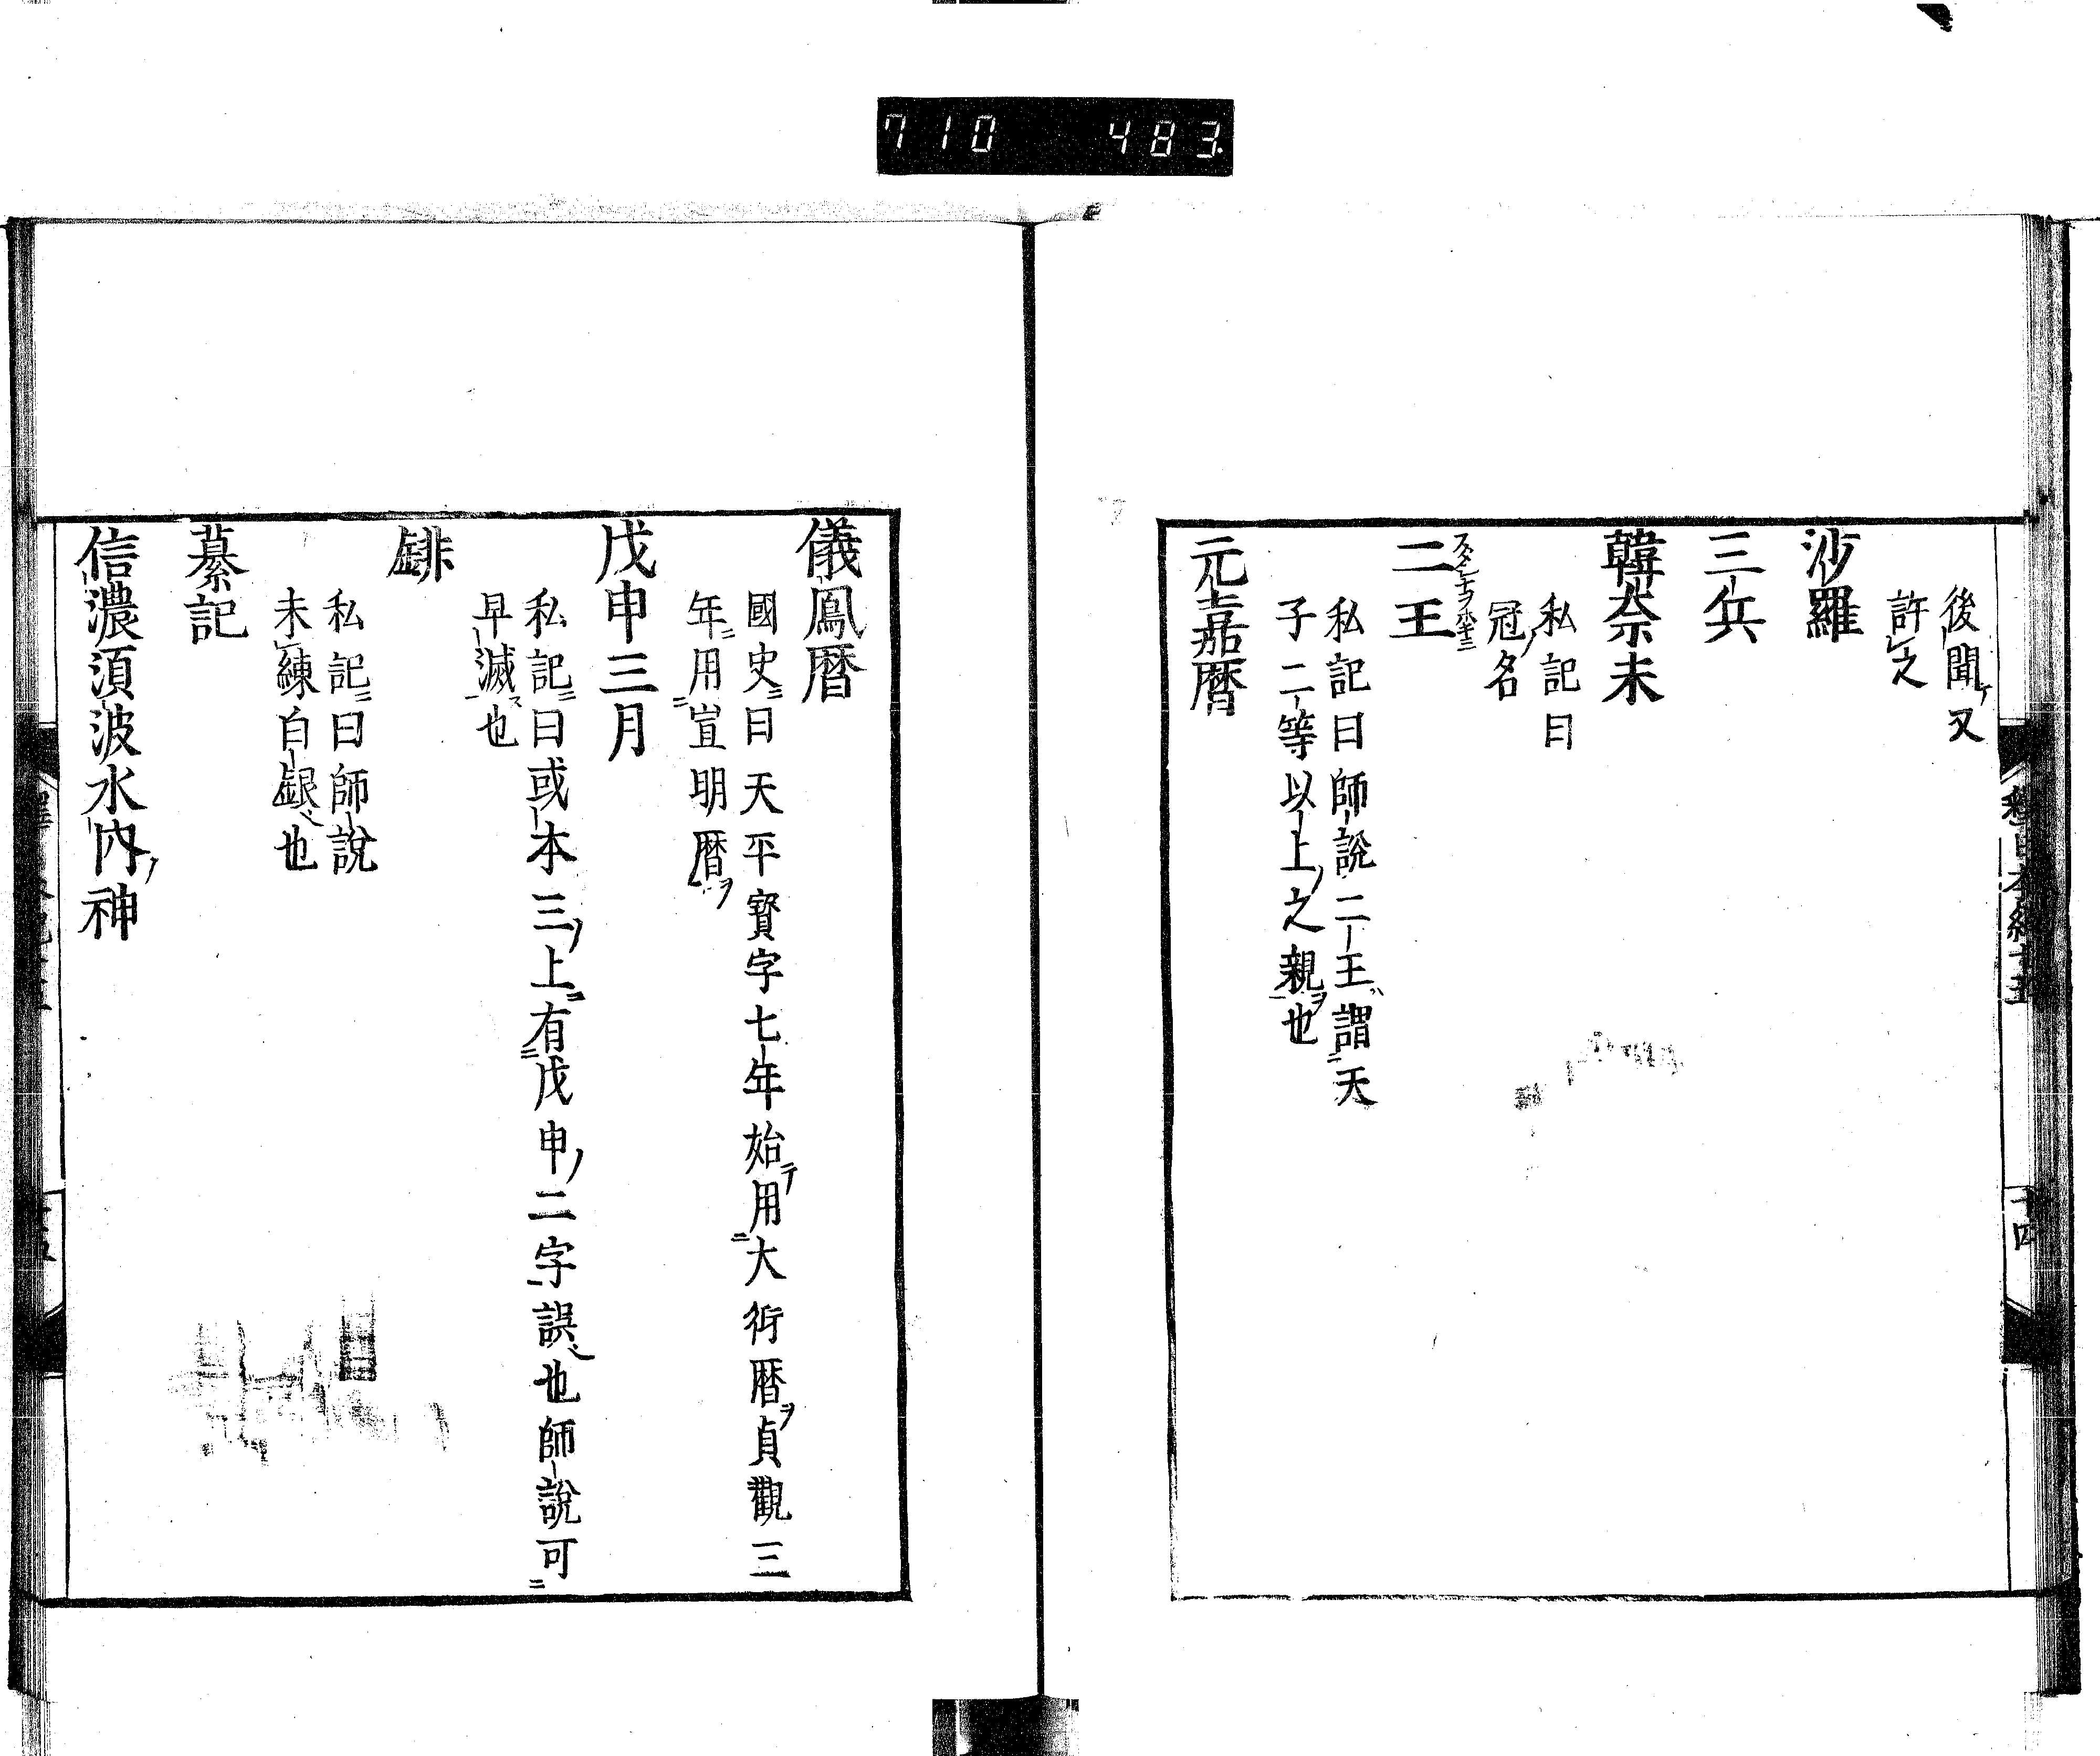 710 483
後聞テ又
許之
沙羅
三兵
韓奈末
私記曰
冠ノ名
二王
私記曰師説二王ハ謂天
子二等以上ノ之親ヲ也
元嘉暦
儀鳳暦
國史ニ曰天平寳字七年始テ用大衍暦ヲ貞觀三
年ニ用宣明暦ヲ
戊申三月
私記ニ曰或本三ノ上ニ有戊申ノ二字誤也師説可
早滅ス也
䤵
私記ニ曰師説
未練白銀也
纂記
信濃須波水内ノ神
十四